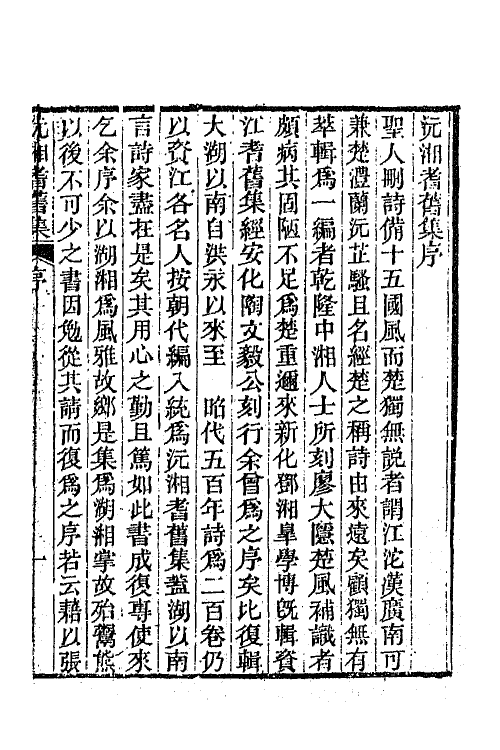 沅湘耆舊集序
聖人刪詩備十五國風而楚獨無說者謂江沱漢廣南可
兼楚澧蘭沅芷騷且名經楚之稱詩由來遠矣顧獨無有
萃輯爲一編者乾隆中湘人士所刻廖大隱楚風補識者
頗病其固陋不足爲楚重邇來新化鄧湘臯學博旣輯資
江耆舊集經安化陶文毅公刻行余曾爲之序矣比復輯
大湖以南自洪永以來至　昭代五百年詩爲二百卷仍
以資江各名人按朝代編入統爲沅湘耆舊集蓋湖以南
言詩家盡在是矣其用心之勤且篤如此書成復專使來
乞余序余以湖湘爲風雅故鄉是集爲湖湘掌故殆鬻熊
以後不可少之書因勉從其請而復爲之序若云藉以張
沅湘耆舊集 序 一